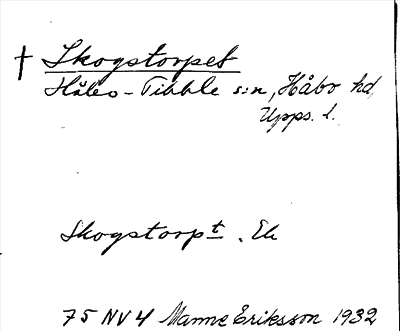 † Skogstorpet
Håbo-Tibble s:n, Håbo hd,
Upps. l.
Skogstorpt. Ek
75 NV 4 Manne Eriksson 1932